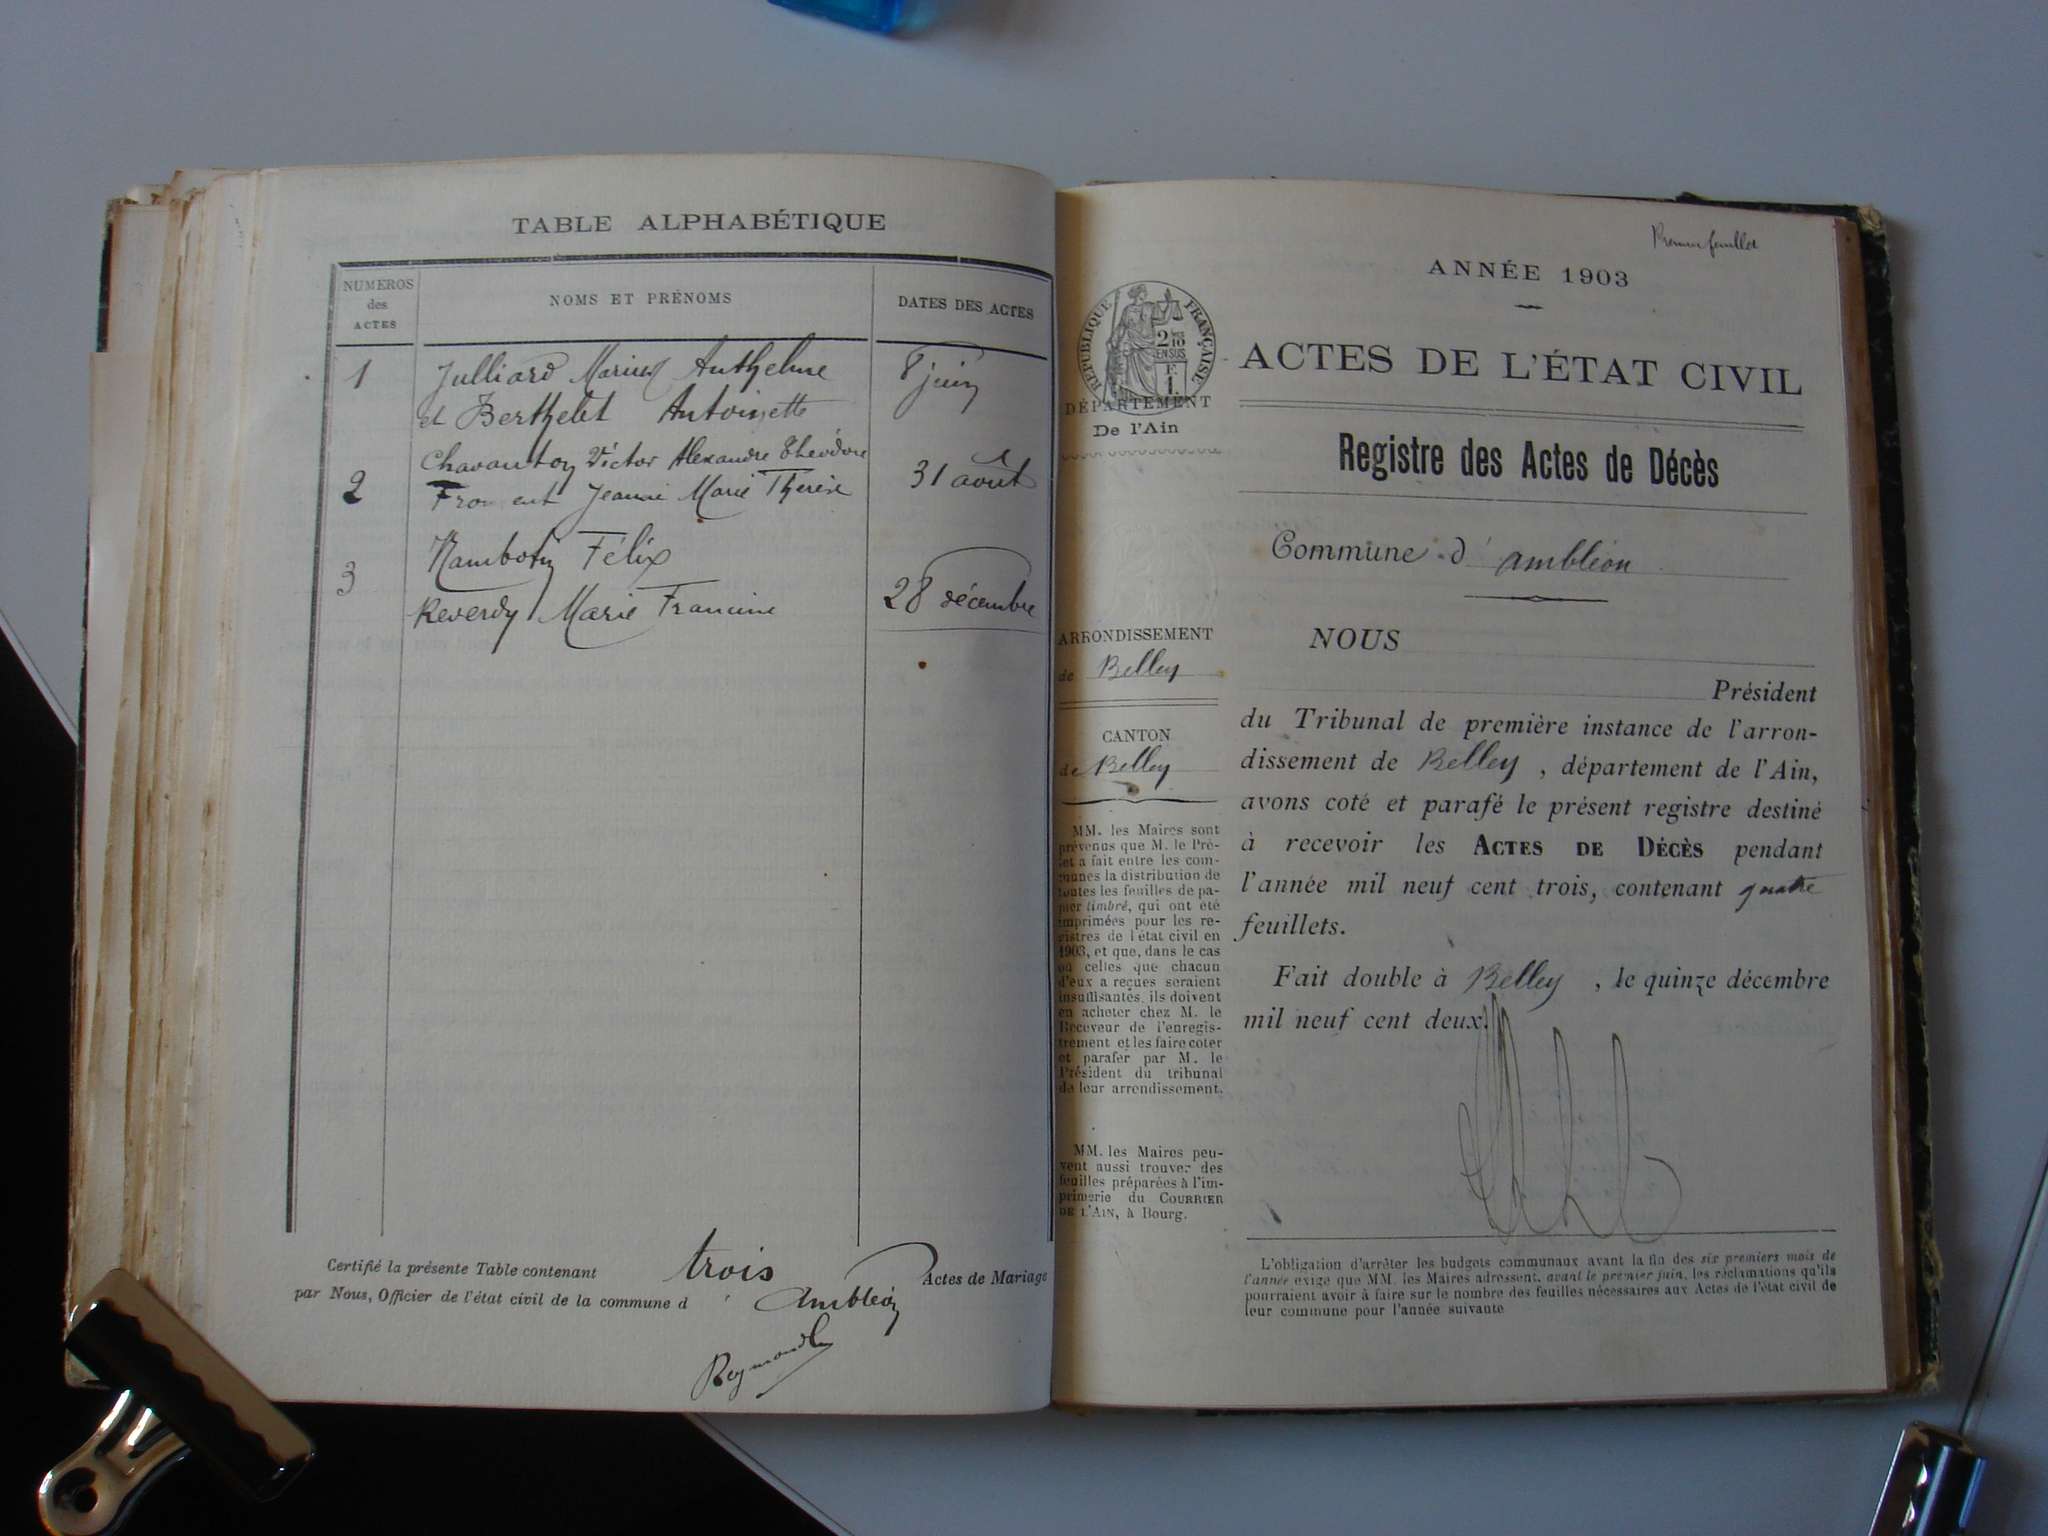 TABLE ALPHABÉTIQUE
NUMEROS
des
ACTES
NOMS ET PRÉNOMS
DATES DES ACTES
1
Julliard Marius Anthelme
et Berthelet Antoinette
8 juin
2
Chavanton Victor Alexandre Théodore
Froment Jeanne Marie Thérèse
31 août
3
Rambotin Félix
Reverdy Marie Francine
28 décembre
Certifié la présente Table contenant trois Actes de Mariage
par Nous, Officier de l'état civil de la commune d' Ambléon
Reymond
Premier feuillet
ANNÉE 1903
RÉPUBLIQUE FRANÇAISE
2/10 EN SUS
DÉPARTEMENT
De l'Ain
ACTES DE L'ÉTAT CIVIL
Registre des Actes de Décès
Commune d' Ambléon
ARRONDISSEMENT
de Belley
CANTON
de Belley
MM. les Maires sont
prévenus que M. le Pré-
fet a fait entre les com-
munes la distribution de
toutes les feuilles de pa-
pier timbré, qui ont été
imprimées pour les re-
gistres de l'état civil en
1903, et que, dans le cas
où celles que chacun
d'eux a reçues seraient
insuffisantes, ils doivent
en acheter chez M. le
Receveur de l'enregis-
trement et les faire coter
et parafer par M. le
Président du tribunal
de leur arrondissement.
MM. les Maires peu-
vent aussi trouver des
feuilles préparées à l'im-
primerie du COURRIER
DE L'AIN, à Bourg.
NOUS
Président
du Tribunal de première instance de l'arron-
dissement de Belley, département de l'Ain,
avons coté et parafé le présent registre destiné
à recevoir les ACTES DE DÉCÈS pendant
l'année mil neuf cent trois, contenant quatre
feuillets.
Fait double à Belley, le quinze décembre
mil neuf cent deux.
L'obligation d'arrêter les budgets communaux avant la fin des six premiers mois de
l'année exige que MM. les Maires adressent, avant le premier juin, les réclamations qu'ils
pourraient avoir à faire sur le nombre des feuilles nécessaires aux Actes de l'état civil de
leur commune pour l'année suivante